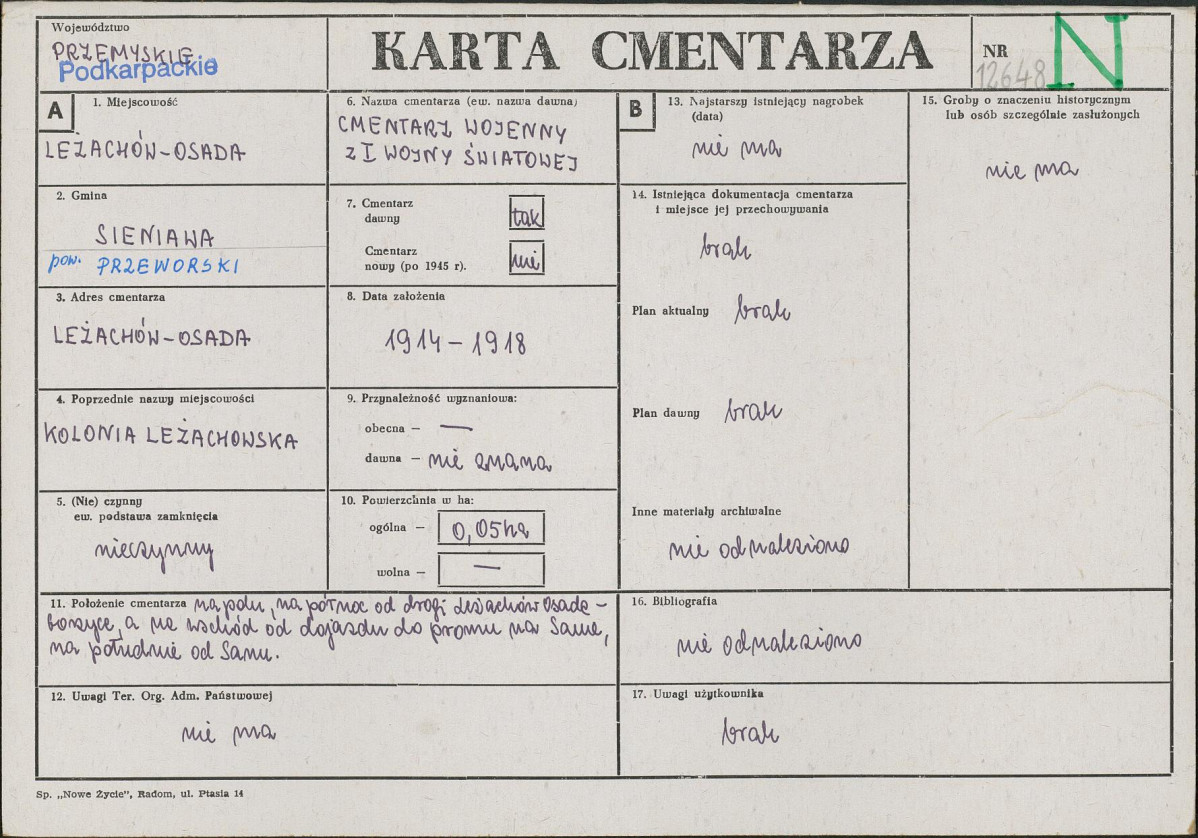 Województwo
PRZEMYSKIE
Podkarpackie
KARTA CMENTARZA
NR
12648
N
A
1. Miejscowość
LEŻACHÓW-OSADA
2. Gmina
SIENIAWA
pow. PRZEWORSKI
3. Adres cmentarza
LEŻACHÓW-OSADA
4. Poprzednie nazwy miejscowości
KOLONIA LEŻACHOWSKA
5. (Nie) czynny
ew. podstawa zamknięcia
nieczynny
6. Nazwa cmentarza (ew. nazwa dawna)
CMENTARZ WOJENNY
Z I WOJNY ŚWIATOWEJ
7. Cmentarz
dawny
tak
Cmentarz
nowy (po 1945 r).
nie
8. Data założenia
1914 – 1918
9. Przynależność wyznaniowa:
obecna – —
dawna – nie znana
10. Powierzchnia w ha:
ogólna – 0,05ha
wolna – —
11. Położenie cmentarza na polu, na północ od drogi Leżachów Osada –
, a na wschód od dojazdu do promu na Sanie,
na południe od Sanu.
12. Uwagi Ter. Org. Adm. Państwowej
nie ma
B
13. Najstarszy istniejący nagrobek
(data)
nie ma
14. Istniejąca dokumentacja cmentarza
i miejsce jej przechowywania
brak
Plan aktualny brak
Plan dawny brak
Inne materiały archiwalne
nie odnaleziono
15. Groby o znaczeniu historycznym
lub osób szczególnie zasłużonych
nie ma
16. Bibliografia
nie odnaleziono
17. Uwagi użytkownika
brak
Sp. „Nowe Życie", Radom, ul. Ptasia 14